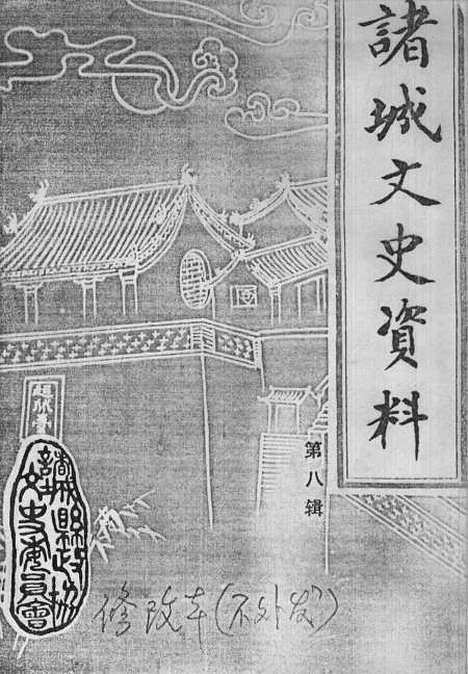 諸城文史資料
第八辑
超然臺
諸城縣政协
文史委員會
修改本(不外发)